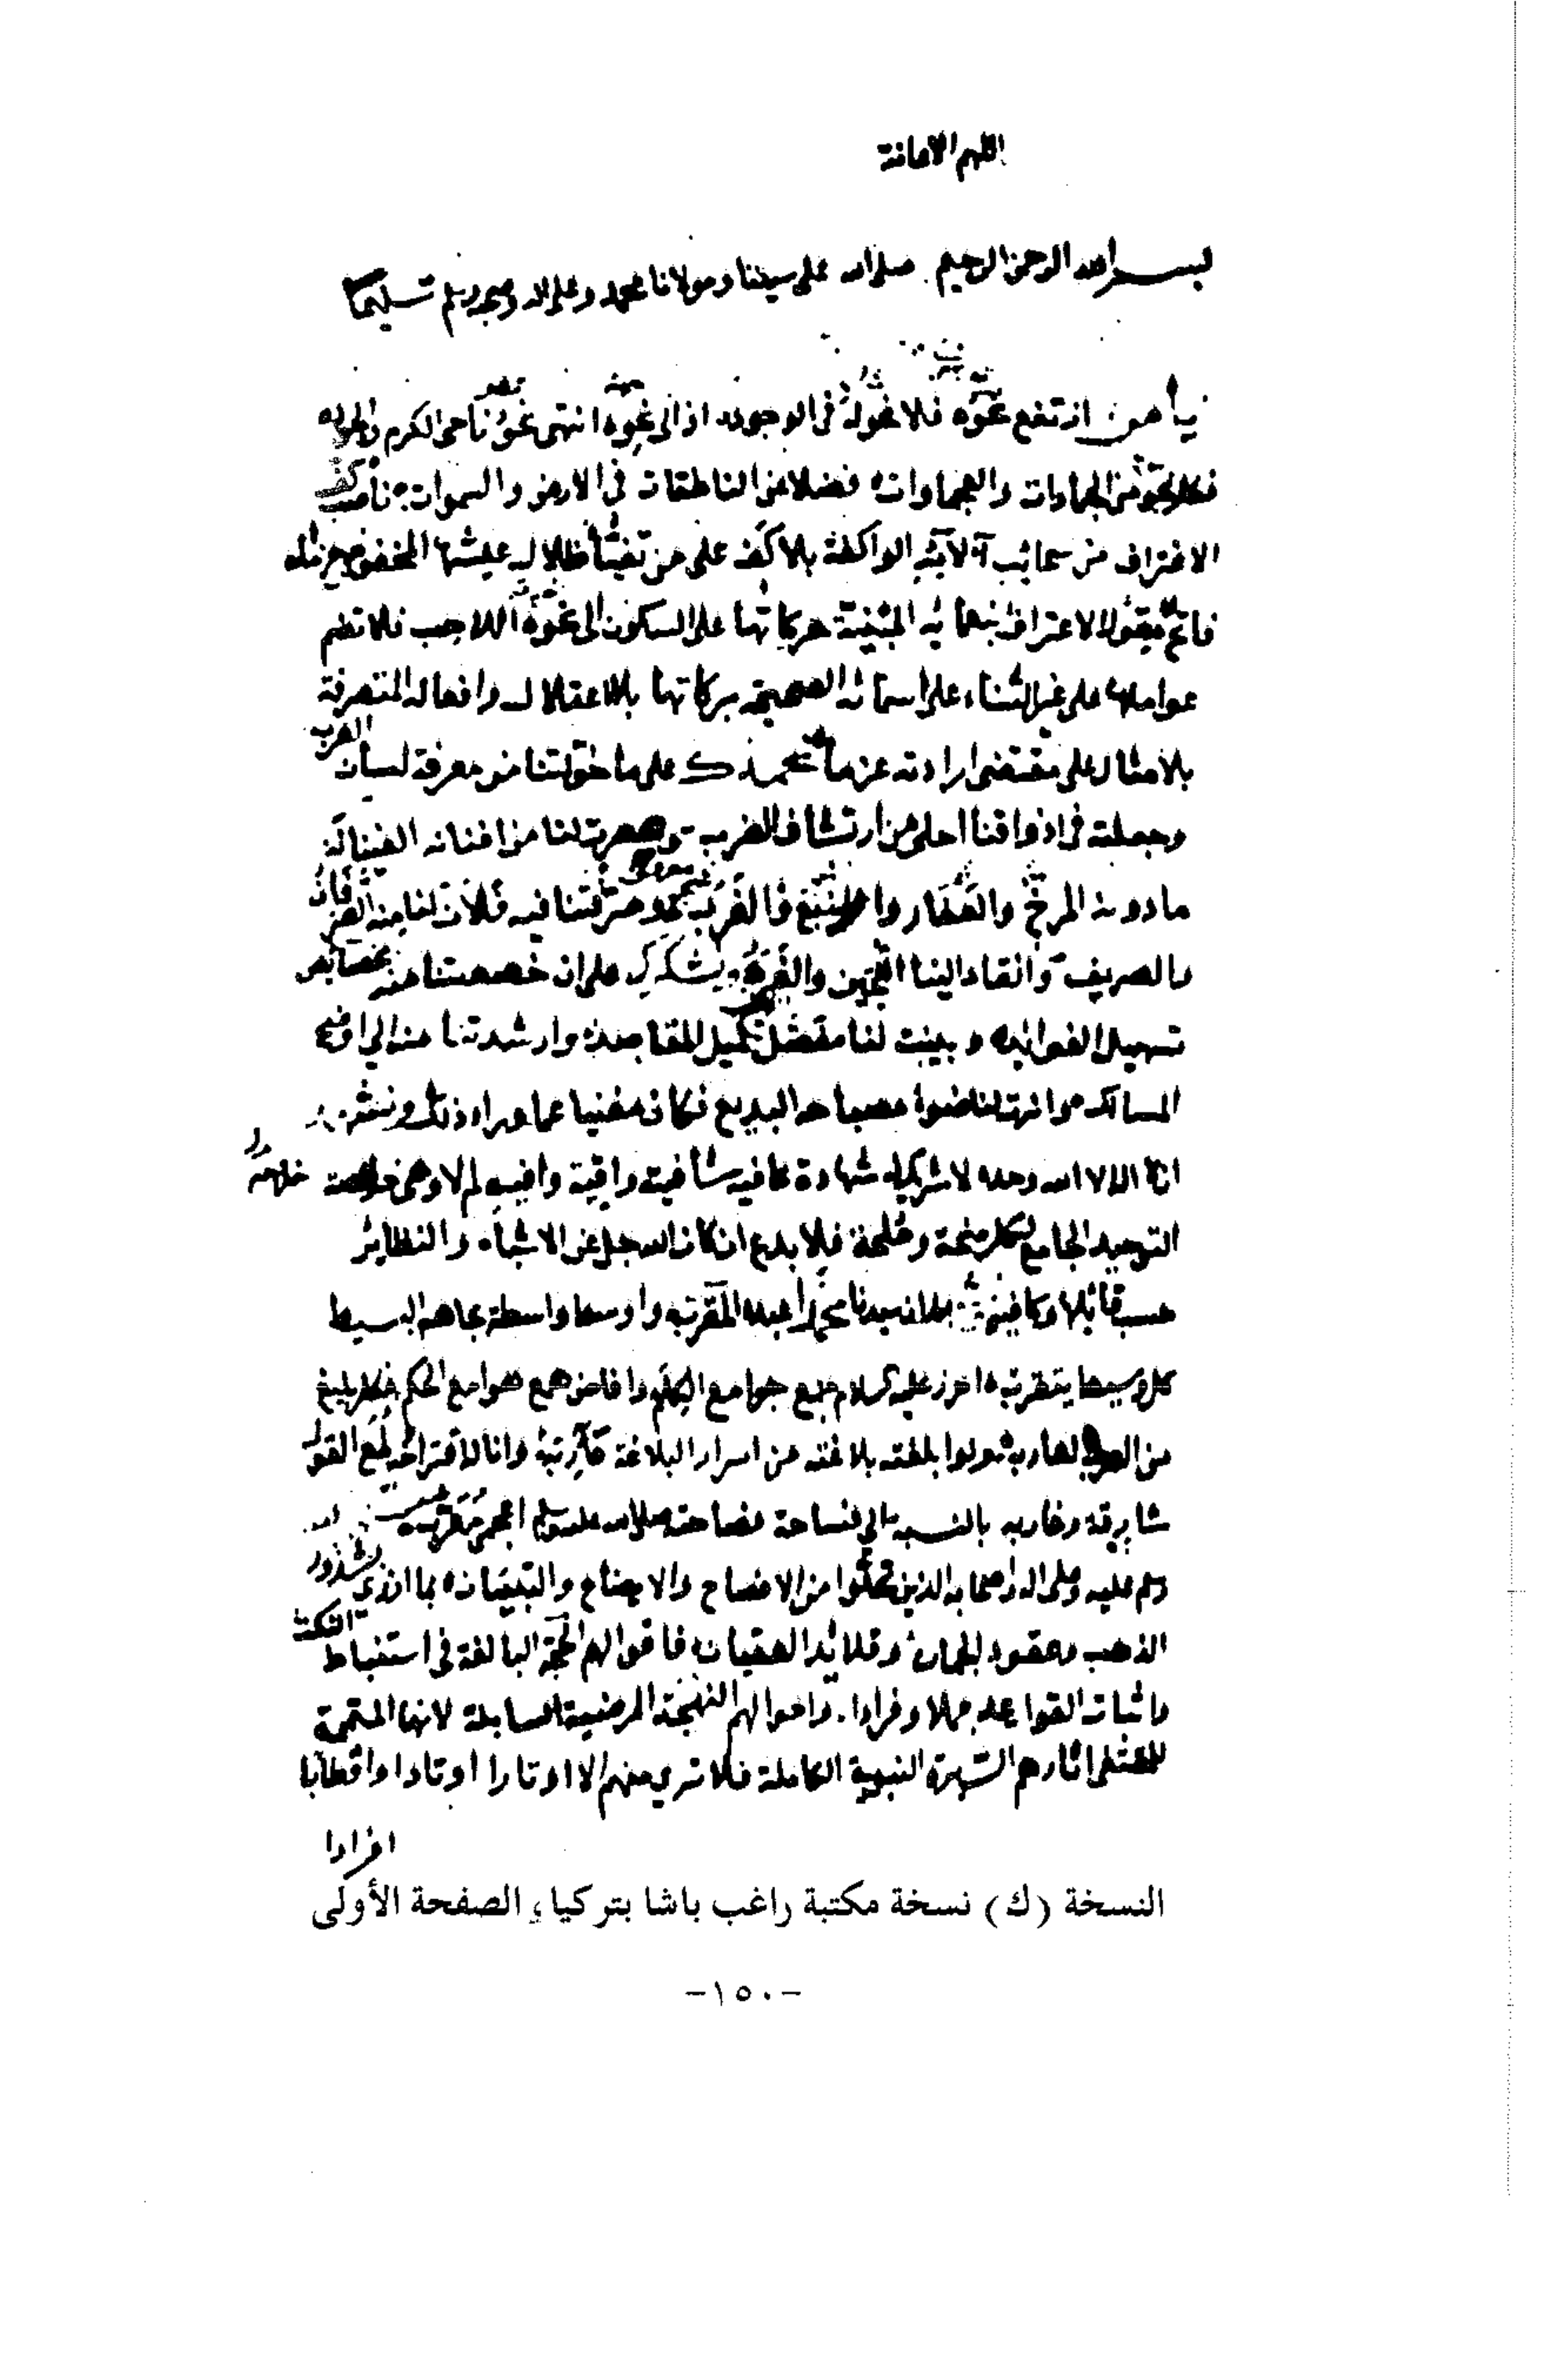 اللهم الاعانة
بسم الله الرحمن الرحيم صلى الله على سيدنا ومولانا محمد وعلى اله وصحبه وسلم تسليما
يا من ارتفع نحوه فلا نحو له في الوجود اذ الى نحوه انتهى نحو ناحى الكرم والجود
فكل نحوه من الجمادات والعجماوات فضلا عن الناطقات في الارض والسموات اكف
الاغتراف من سحائب آلآئه الواكفة بلا كف على من تفيأ ظلال عيشها المخفوض
الاعتراف بنعمائه المبنية حركاتها على السكون الى نحوه اللاحب فلا تظم
عواملها على غير الثناء على اسمائه الصحيحة بركاتها بلا اعتلال وافعاله المتصرفة
بلا مثال على مقتضى ارادته عز ما نحمدك على ما خولتنا من معرفة لسان العرب
وجعلته في اذواقنا احلى من ارتشاف الضرب لنا من افنانه الفينانة
ما دونه المرخ والعفار والنبع والغرب صرفتنا فيه فلان لنا منه
بالصريف وانقاد الينا والغرب ونشكرك على ان خصصتنا منه بخصائص
تسهيل الفوائد وبينت لنا مفصل تكميل المقاصد وارشدتنا منه الى اوضح
المسالك وانرت لنا ضوا مصباحه البديع فكان مغنيا عما وراء ذلك ونشهد
ان لا اله الا الله وحده لا شريك له شهادة كافية شافية واقية وافية لم لا وهي خلاصة
التوحيد الجامع لكل منحة وملحة فلا بدع ان كان الله جل عن الاشباه والنظائر
حسب قائلها وكافيه بان سيدنا محمدا عبده المقرب واوسط واسطة بجاهه البسيط
كل وسيط يتقرب احرز عليه السلام جمع جوامع الكلم وافاض همع هوامع الحكم فكل بليغ
من العرب العاربة ولوا بلغته بلاغته من اسرار البلاغة مآربه وانا لاقتراحه لمع القول
شارقة وغاربه بالنسبة الى فصاحة فصاحته صلى الله عليه وسلم
وسلم عليه وعلى اله واصحابه الذين تحلوا من الافصاح والايضاح والتبيان بما ازرى بشذور
الذهب وعقود الجمان وقلائد العقيان فاقوالهم الحجة البالغة في استنباط النكت
واثبات القواعد جملا وفرادا واحوالهم النهجة المرضية السابلة لانها المتممة
للمقتفى اثارهم الشهرة النبوية الكاملة فلا ترى منهم الا اوتارا اوتادا واقطابا
افرادا
النسخة (ك) نسخة مكتبة راغب باشا بتركيا، الصفحة الأولى
-١٥٠-